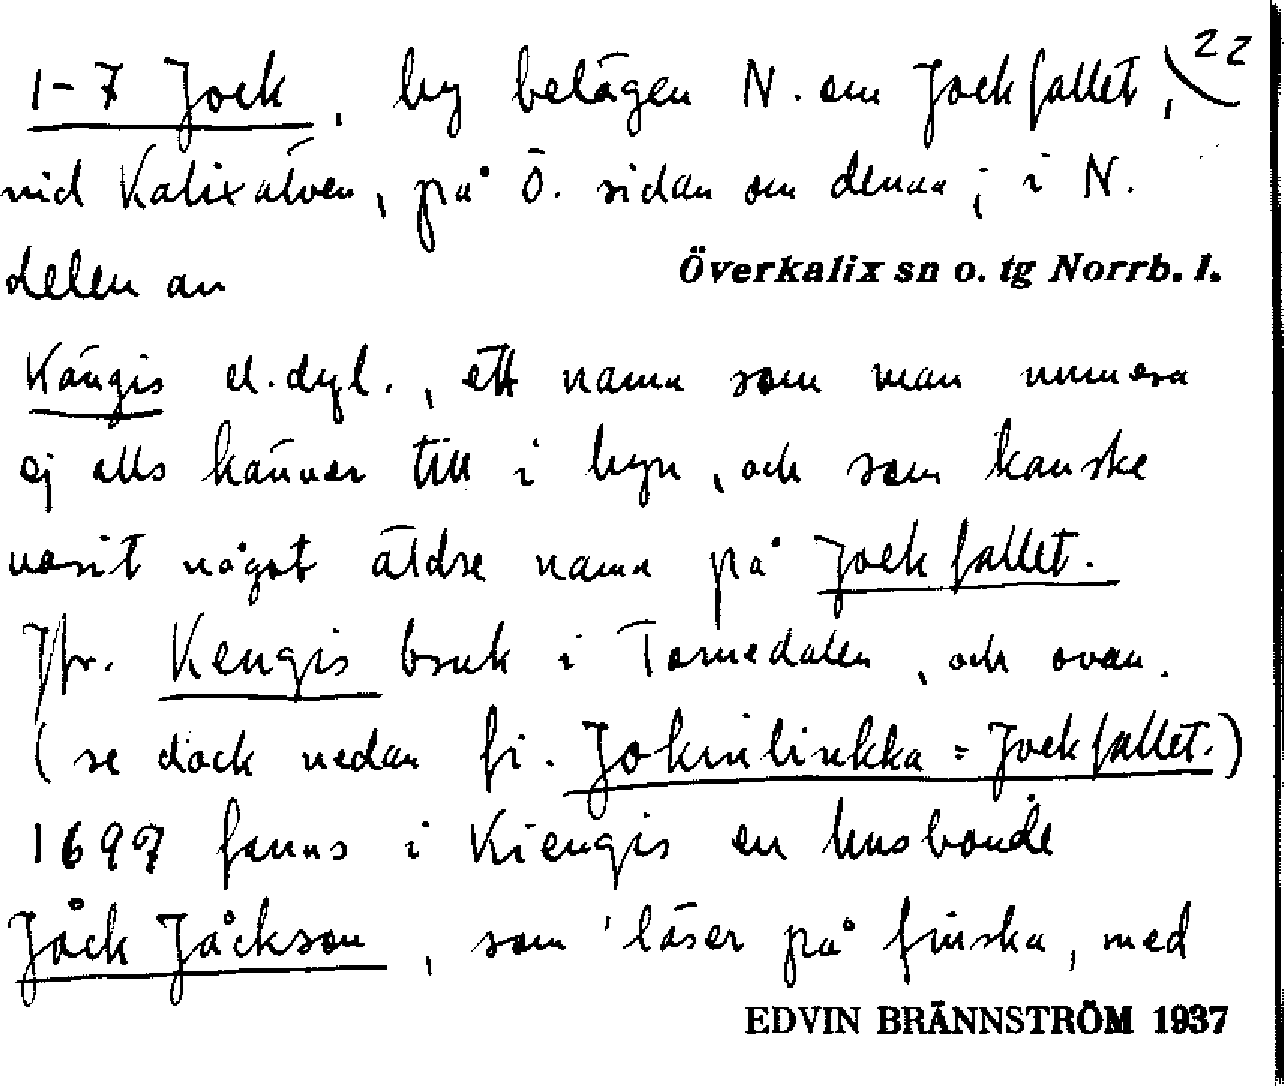 22
1-7 Jock, by belägen N. om Jockfallet,
vid Kalixälven, på Ö. sidan om denna; i N.
delen av
Överkalix sn o. tg Norrb. l.
Kängis el. dyl., ett namn som man numera
ej alls känner till i byn, och som kanske
varit något äldre namn på Jockfallet.
Jfr. Kengis bruk i Tornedalen, och ovan.
(se dock nedan fi. Jokinlinkka = Jockfallet.)
1697 fanns i Kiengis en husbonde
Jåck Jåckson, som 'läser på finska, med
EDVIN BRÄNNSTRÖM 1937